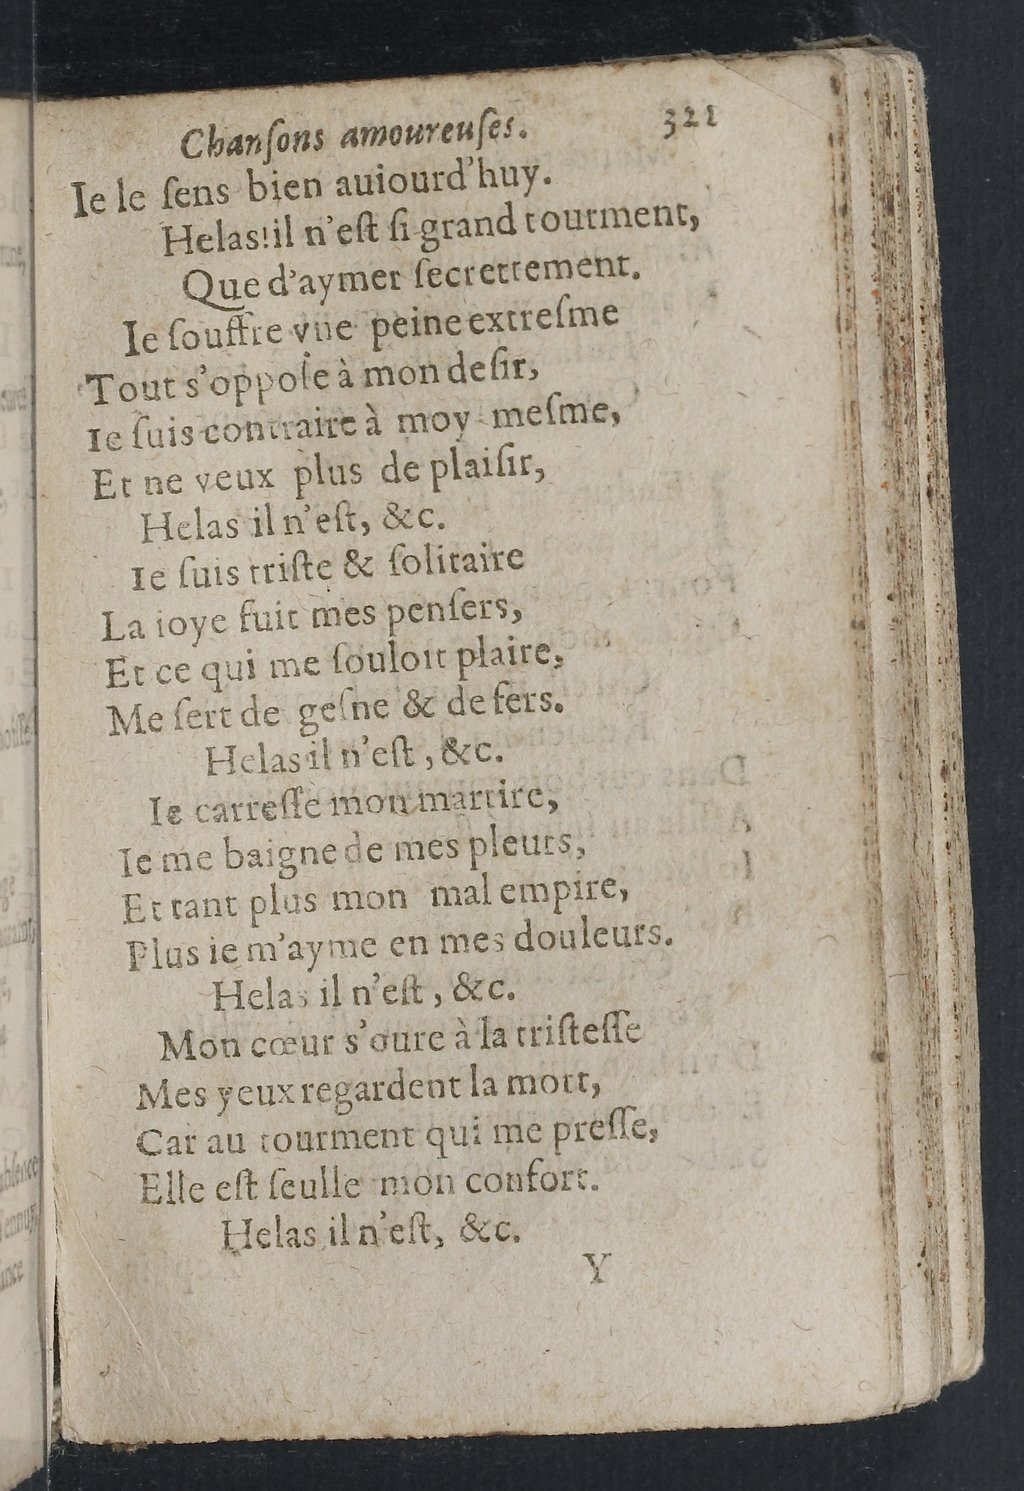 Chanſons amoureuſes. 321
Ie le ſens bien auiourd'huy.
Helas! il n'eſt ſi grand tourment,
Que d'aymer ſecrettement.
Ie ſouffre vne peine extreſme
Tout s'oppoſe à mon deſir,
Ie ſuis contraire à moy meſme,
Et ne veux plus de plaiſir,
Helas il n'eſt, &c.
Ie ſuis triſte & ſolitaire
La ioye fuit mes penſers,
Et ce qui me ſouloit plaire,
Me ſert de geſne & de fers.
Helas il n'eſt, &c.
Ie carreſſe mon martire,
Ie me baigne de mes pleurs,
Et tant plus mon mal empire,
Plus ie m'ayme en mes douleurs.
Helas il n'eſt, &c.
Mon cœur s'oure à la triſteſſe
Mes yeux regardent la mort,
Car au tourment qui me preſſe,
Elle eſt ſeulle mon confort.
Helas il n'eſt, &c.
Y